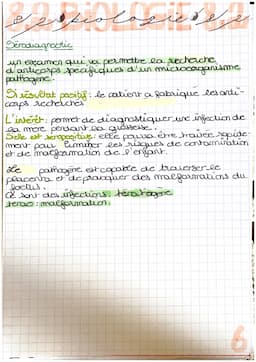 Sérodiagnostic
un examen qui va permettre la recherche
d'anticorps spécifiques d'un microorganisme
pathogène.
Si résultat positif : le patient a fabriqué les anti-
corps recherchés
L'intérêt : permet de diagnostiquer une infection de
la mère pendant la grossesse.
Si elle est séropositive : elle pourra être traitée rapide-
ment pour limiter les risques de contamination
et de malformation de l'enfant.
Le pathogène est capable de traverser le
placenta et de provoquer des malformations du
foetus.
Ce sont des infections tératogène
térato : malformation
6